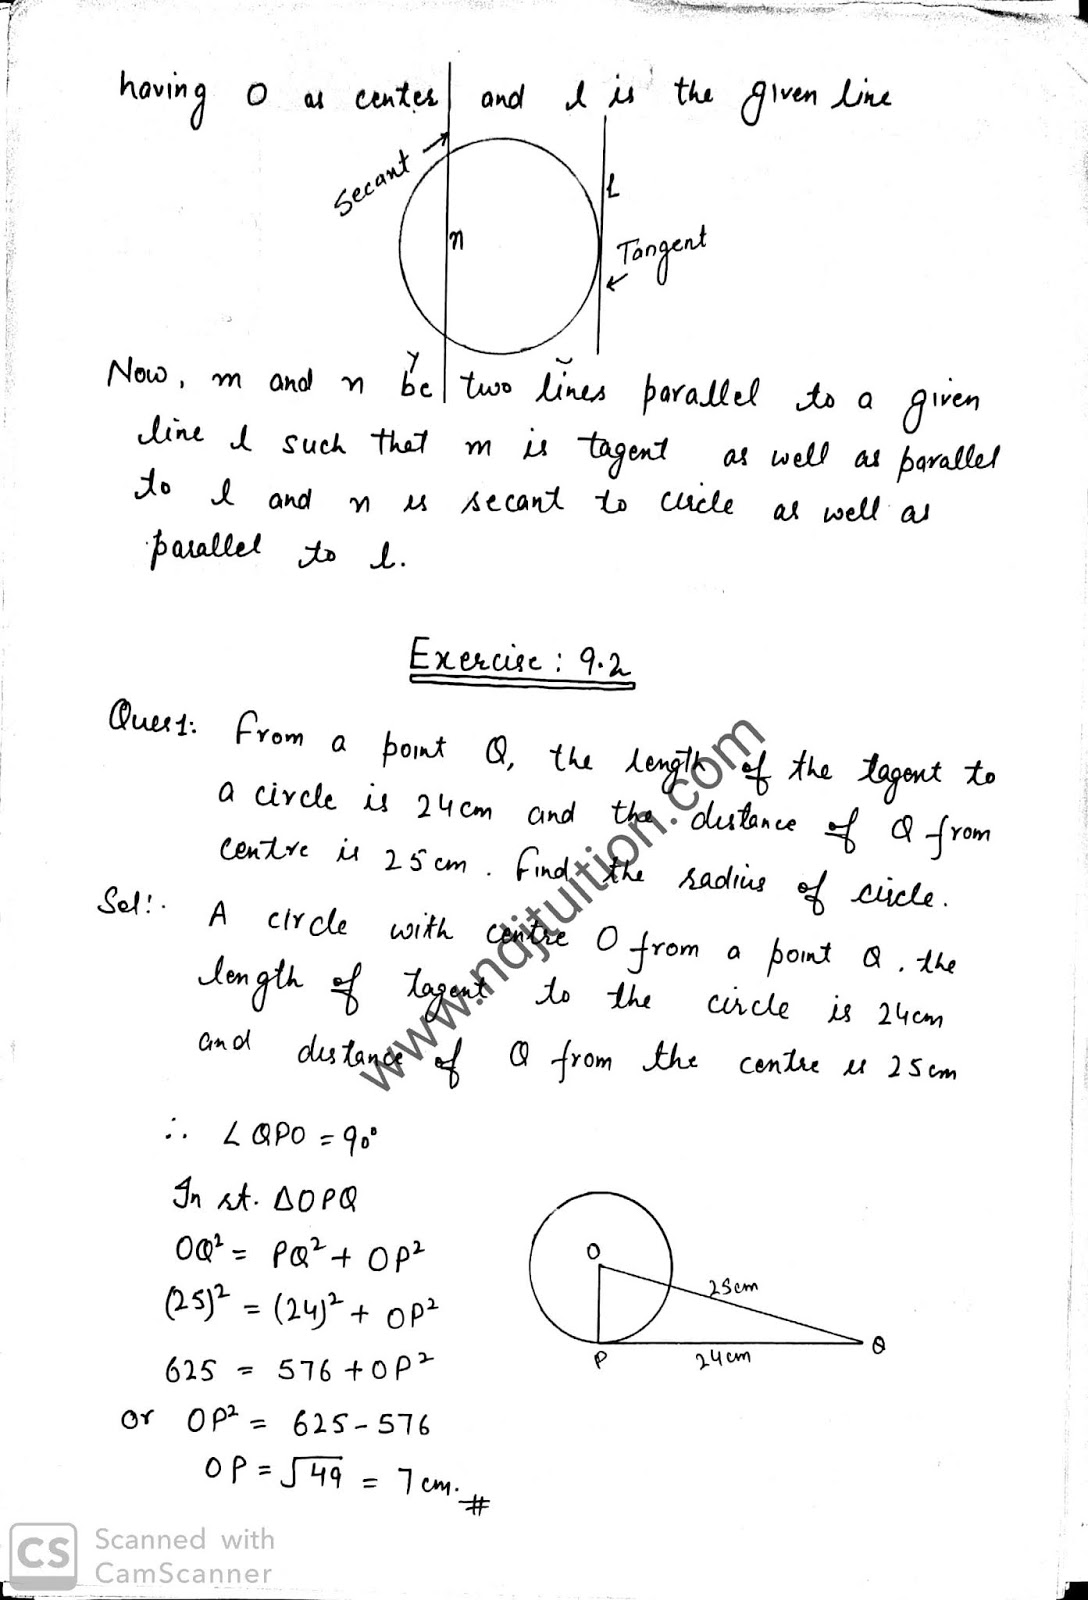 having O as center and l is the given line
Secant
l
n
Tangent
Now, m and n be two lines parallel to a given
line l such that m is tagent as well as parallel
to l and n is secant to circle as well as
parallel to l.
Exercise : 9.2
Ques 1: From a point Q, the length of the tagent to
a circle is 24cm and the distance of Q from
centre is 25 cm. Find the radius of circle.
Sol:. A circle with centre O from a point Q, the
length of tagent to the circle is 24cm
and distance of Q from the centre is 25cm
∴ ∠QPO = 90°
In rt. ΔOPQ
OQ² = PQ² + OP²
(25)² = (24)² + OP²
625 = 576 + OP²
or OP² = 625 - 576
OP = √49 = 7cm. #
O
25cm
P
24cm
Q
www.ndjtuition.com
CS Scanned with
CamScanner